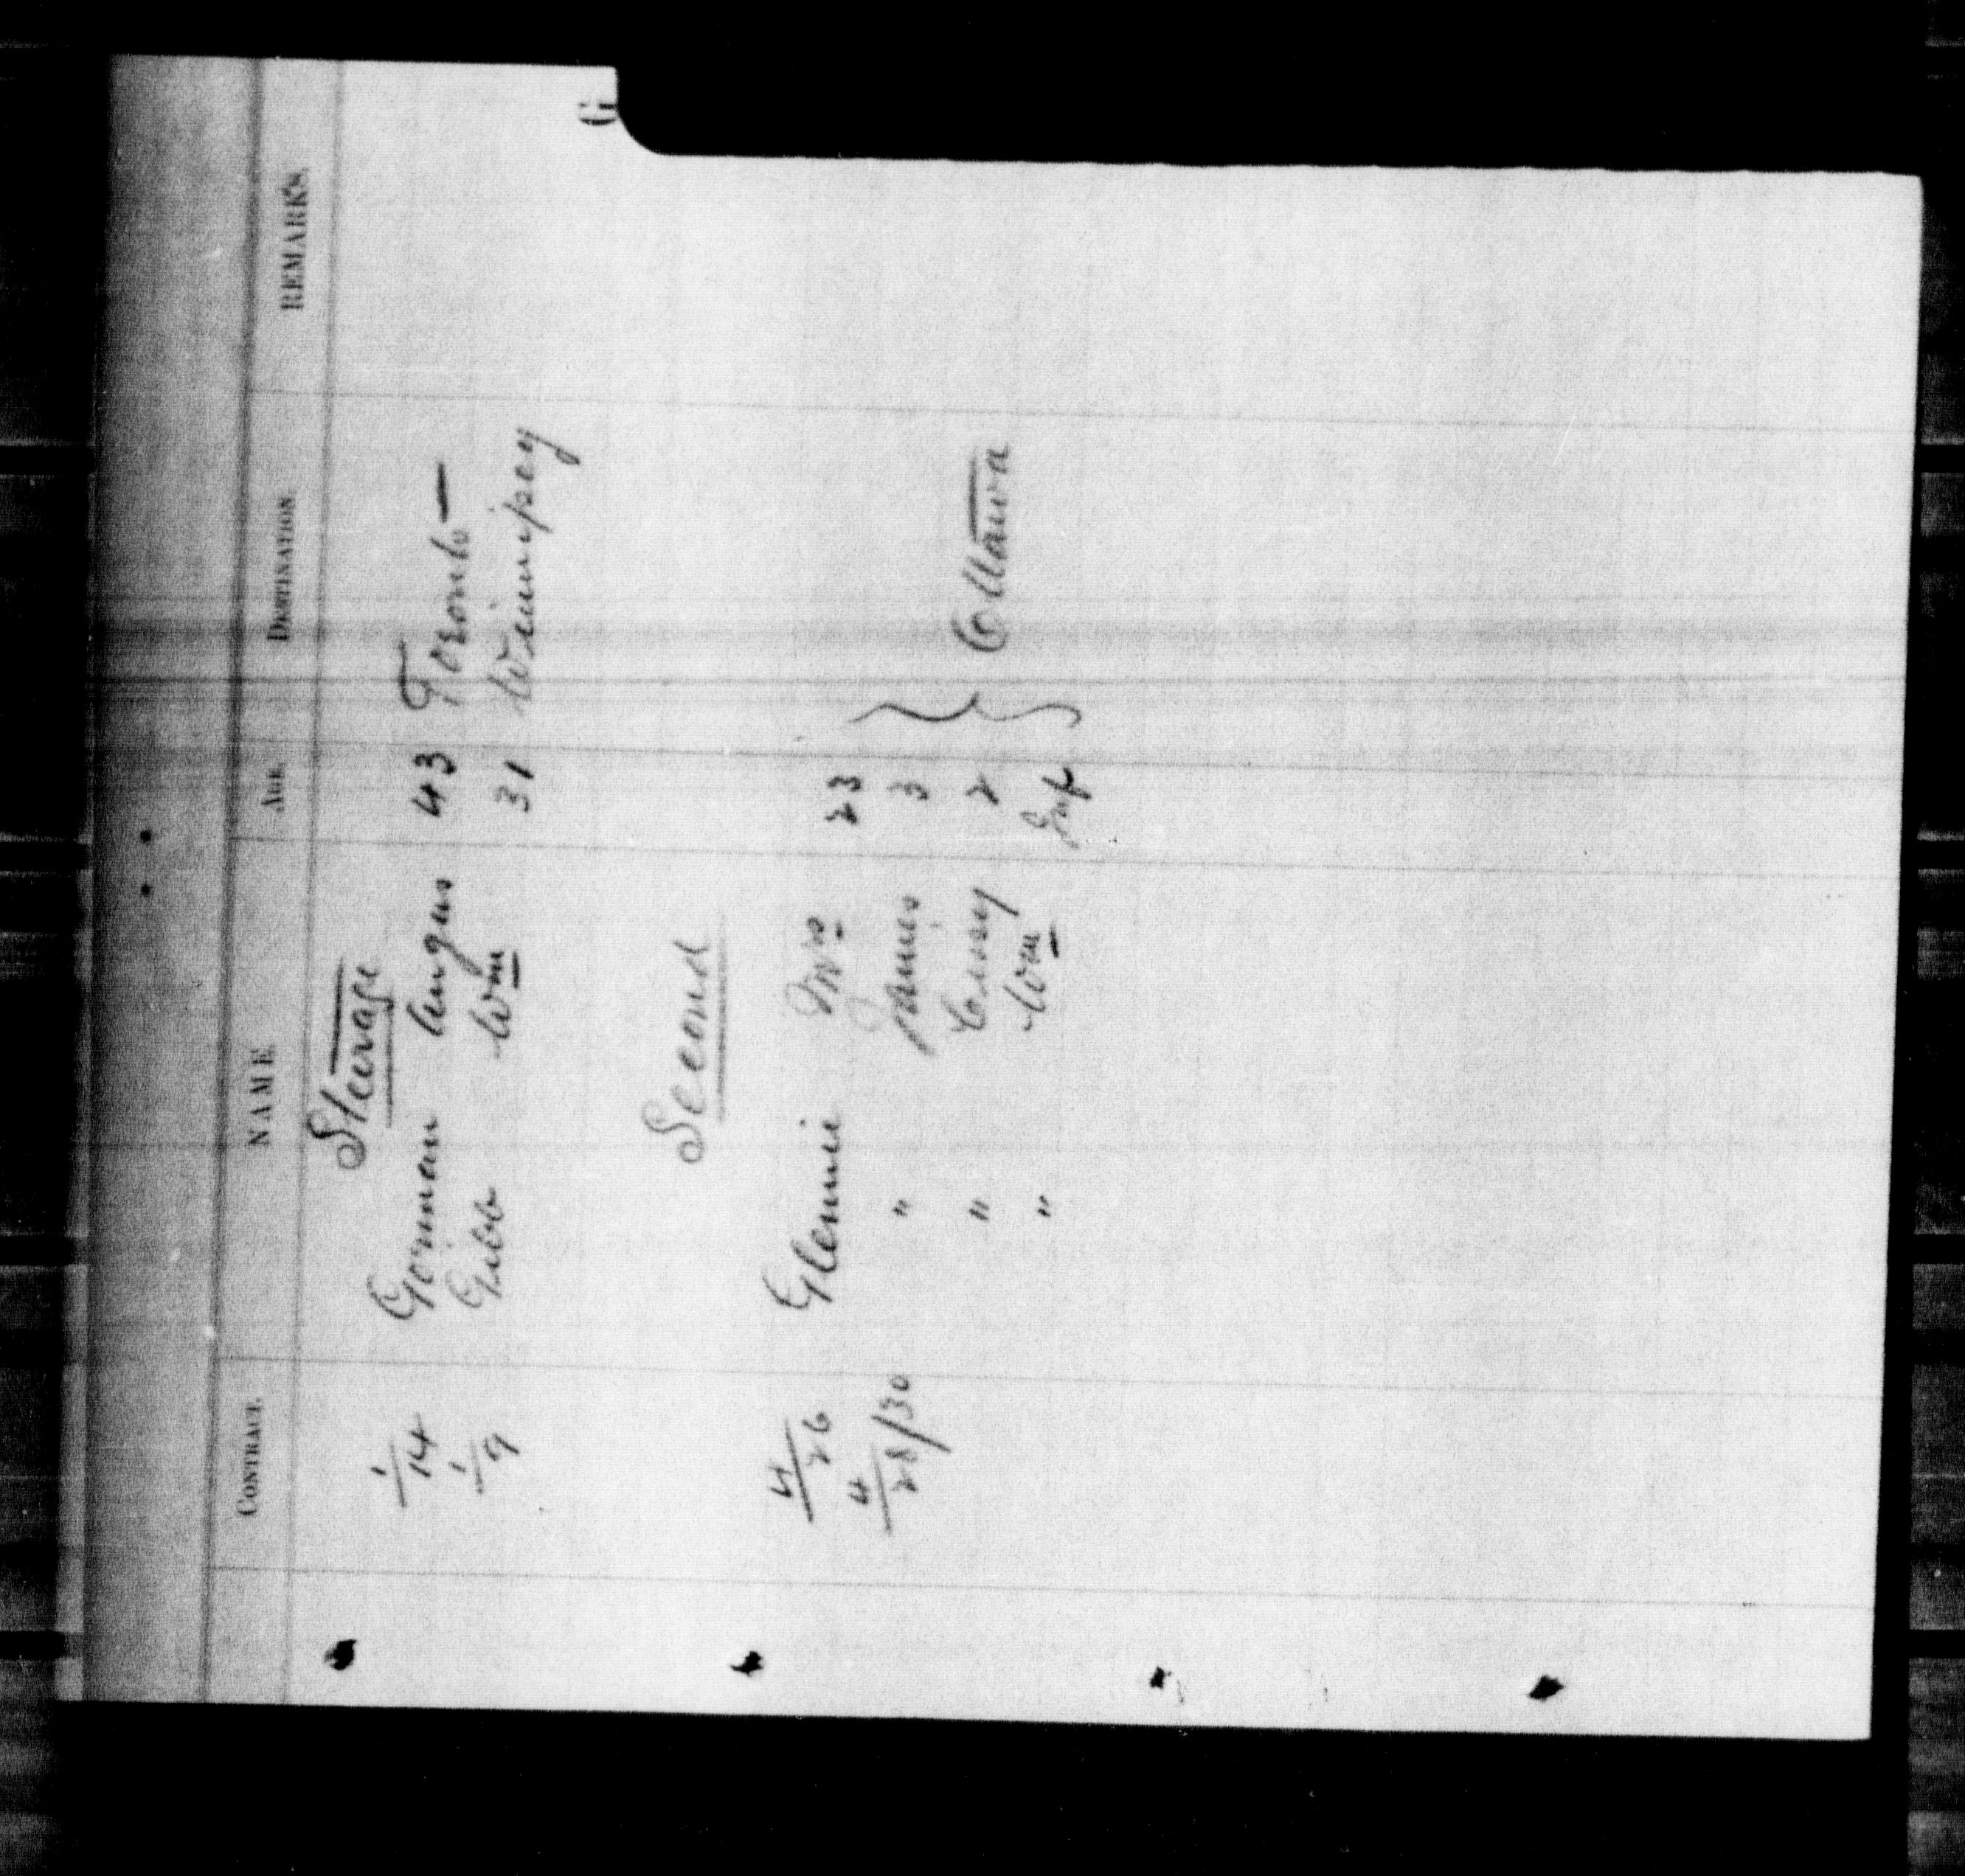 G
CONTRACT. NAME. AGE. DESTINATION. REMARKS.
Steerage
1/14 Gorman Angus 43 Toronto
1/9 Gibb Wm 31 Winnipeg
Second
4/26 Glennie Mrs 23
4/28/30 " James 3
" Cissy 2 Ottawa
" Wm Inf